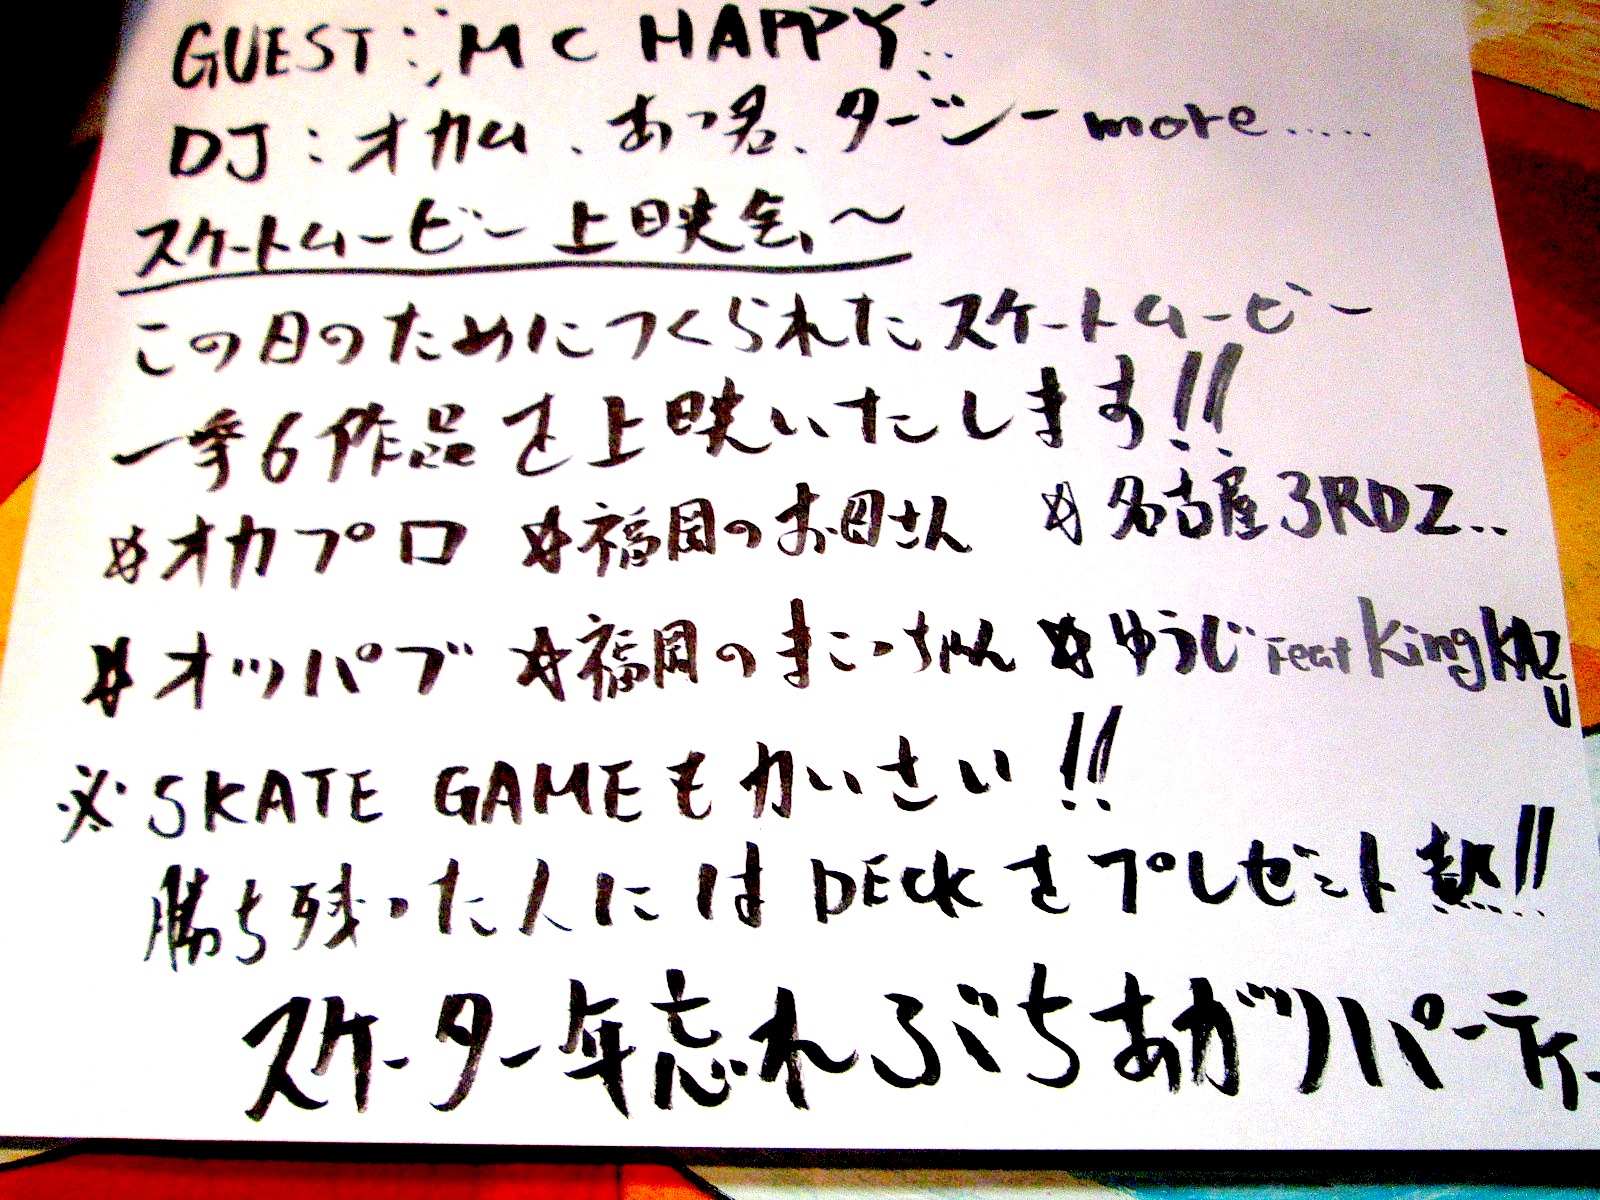 GUEST: MC HAPPY
DJ:オカム、あつ名、タージー more.....
スケートムービー上映会〜
この日のためにつくられたスケートムービー
一挙6作品を上映いたします!!
☆オカプロ ☆福岡のお母さん ☆名古屋3RDZ..
☆オッパブ ☆福岡のまこっちゃん ☆ゆうじ Feat King
※SKATE GAMEもかいさい!!
勝ち残った人にはDECKをプレゼント熱!!
スケーター年忘れぶちあがりパーティー